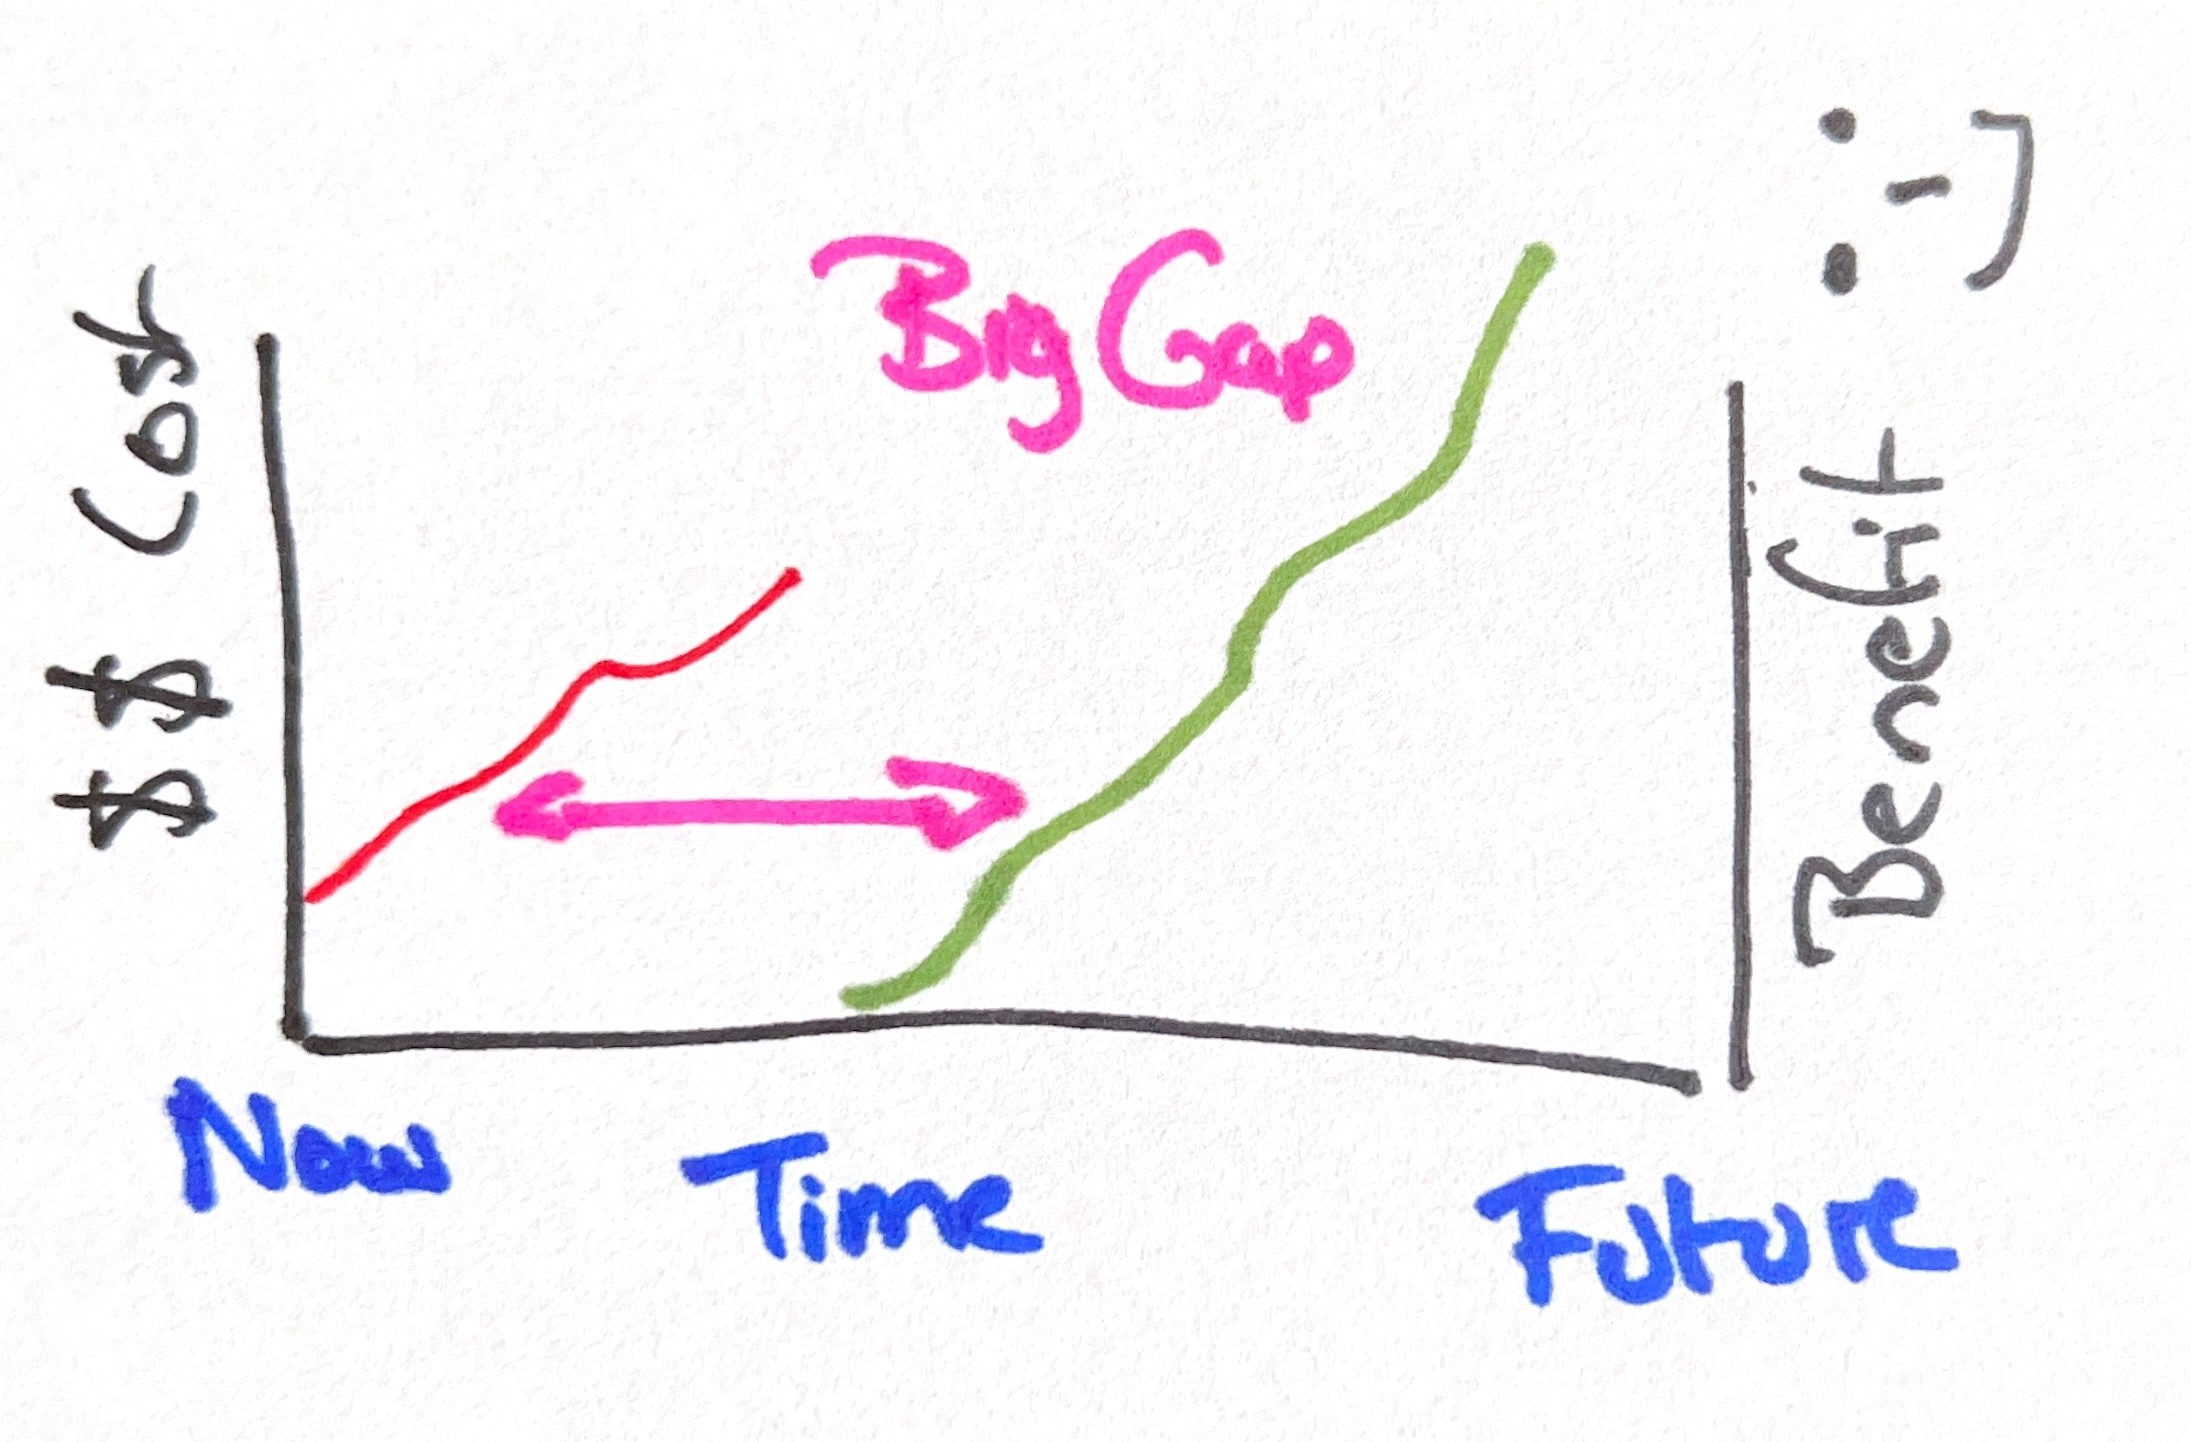 $$ Cost
Big Gap
Benefit :-)
Now
Time
Future